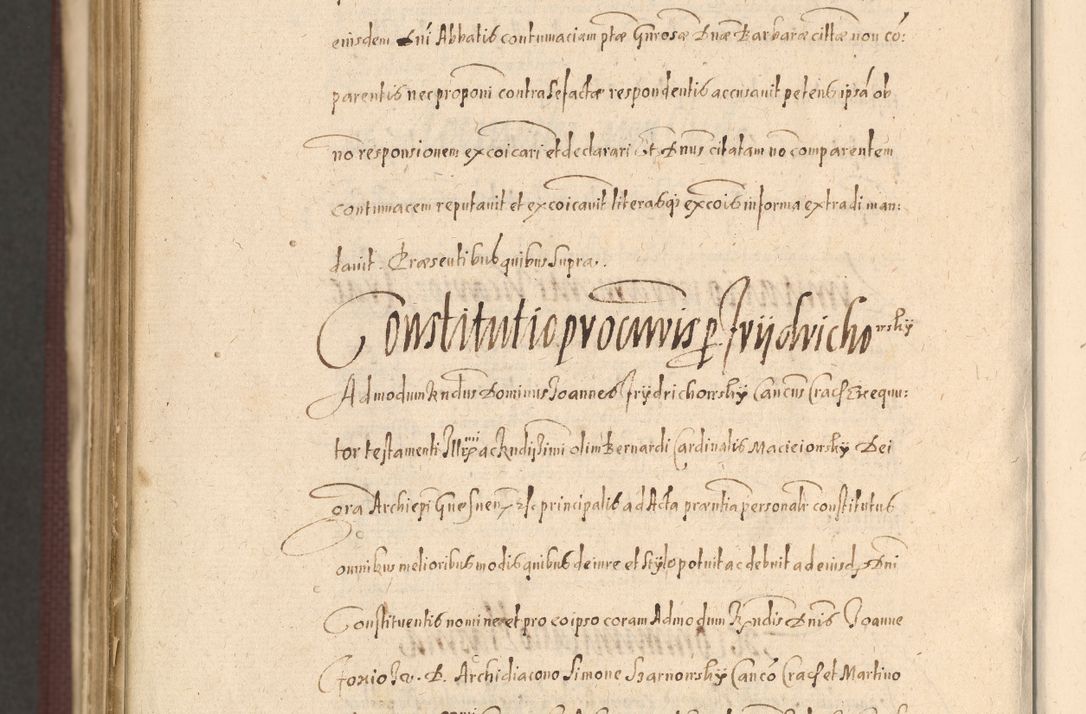 eiusdem Dni Abbatis contumaciam ptæ Gnrosæ Dnæ Barbaræ cittæ non có:
parentis nec proponi contra se factæ respondentis accusauit petens ipsā ob
nō responsionem excoicari et declarari Et Dnus citatam nō comparentem
contumacem reputauit et excoicauit literasq; excois in forma extradi man:
dauit. Præsentibus quibus supra.
Constitutio procuris p Frÿdrichowskÿ
Admodum Rndus Dominus Joannes Frÿdrichowskÿ Cancus Crac Exequu:
tor testamenti Illrmi ac Rndissimi olim Bernardi Cardinalis Macieiowskÿ Dei
gra Archiepi Gnesnen principalis ad Acta præntia personalr constitutus
omnibus melioribus modis quibus de iure et stÿlo potuit ac debuit ad eiusd Dni
Constituentis nomine et pro eo ipso coram Admodum Rndis Dnis Joanne
Foxio J. V. D. Archidiacono Simone Szarnowskÿ Cancō Crac et Martino